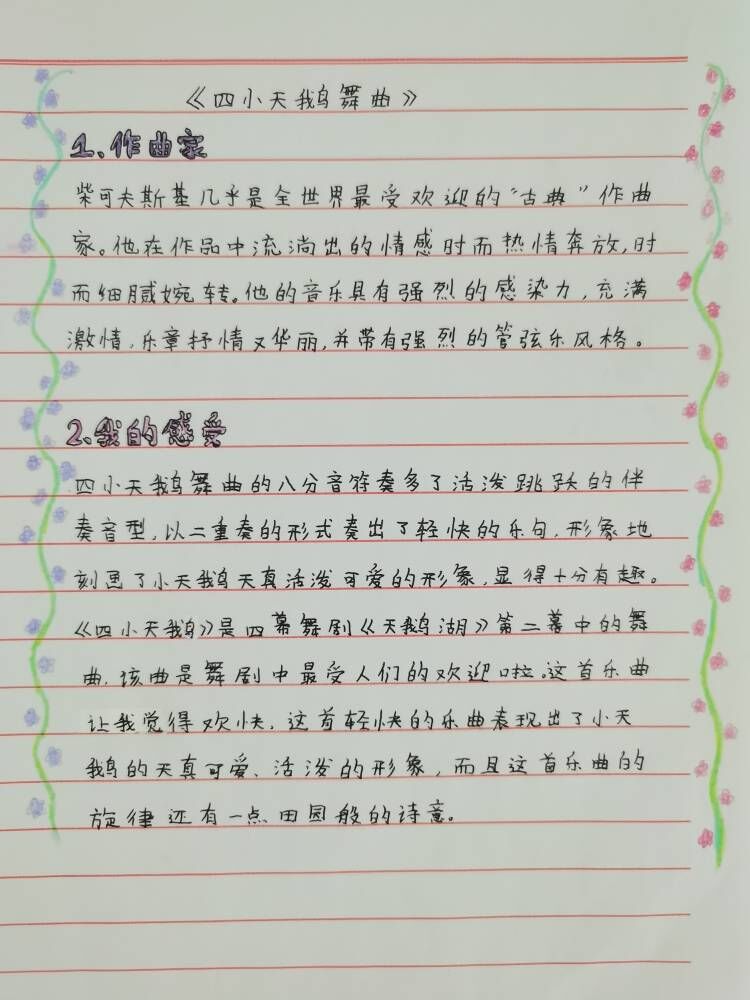 《四小天鹅舞曲》
1、作曲家
柴可夫斯基几乎是全世界最受欢迎的“古典”作曲
家。他在作品中流淌出的情感时而热情奔放,时
而细腻婉转。他的音乐具有强烈的感染力,充满
激情,乐章抒情又华丽,并带有强烈的管弦乐风格。
2、我的感受
四小天鹅舞曲的八分音符奏多了活泼跳跃的伴
奏音型,以二重奏的形式奏出了轻快的乐句,形象地
刻画了小天鹅天真活泼可爱的形象,显得十分有趣。
《四小天鹅》是四幕舞剧《天鹅湖》第二幕中的舞
曲,该曲是舞剧中最受人们的欢迎啦。这首乐曲
让我觉得欢快,这首轻快的乐曲表现出了小天
鹅的天真可爱、活泼的形象,而且这首乐曲的
旋律还有一点田园般的诗意。